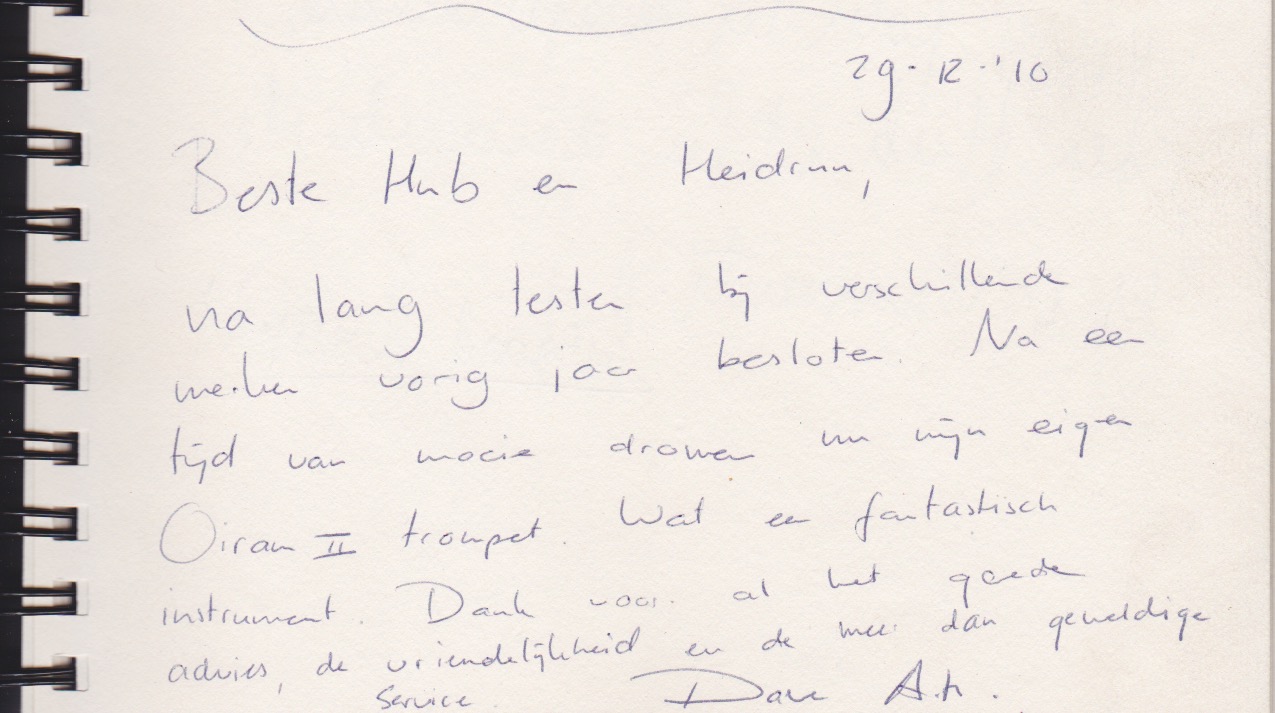 29-12-'10
Beste Hub en Heidrun,
na lang testen bij verschillende
merken vorig jaar besloten. Na een
tijd van mooie dromen nu mijn eigen
Oiram II trompet. Wat een fantastisch
instrument. Dank voor al het goede
advies, de vriendelijkheid en de meer dan geweldige
service.